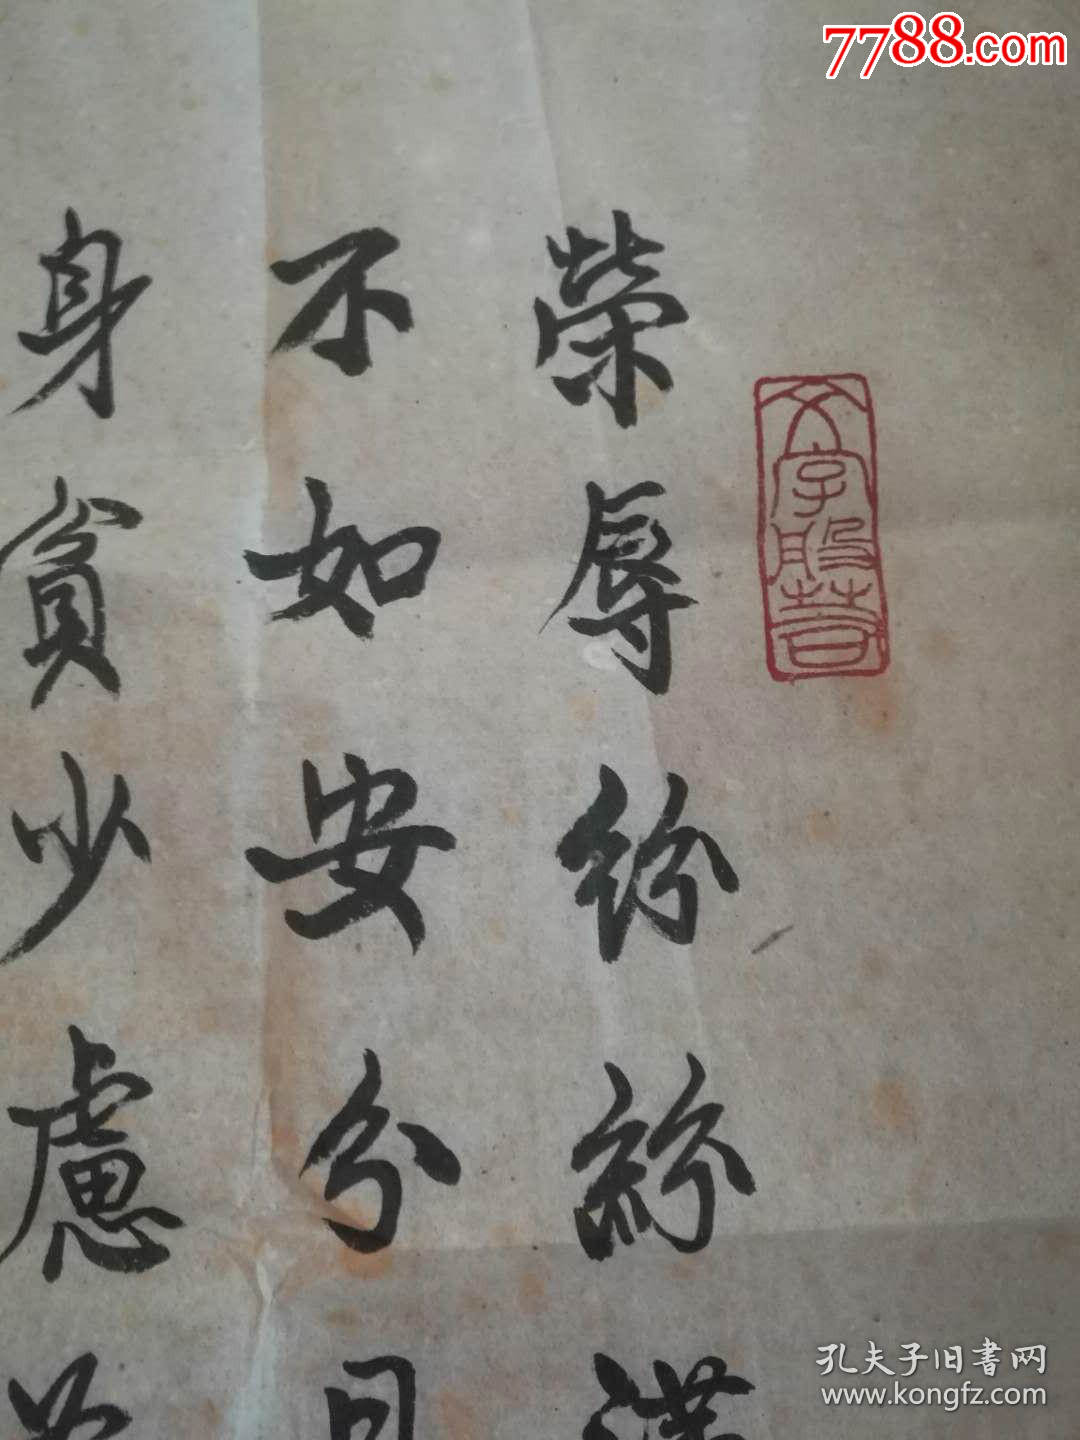 7788.com
榮辱紛紛滿
不如安分
身貧少慮
孔夫子旧書网
www.kongfz.com